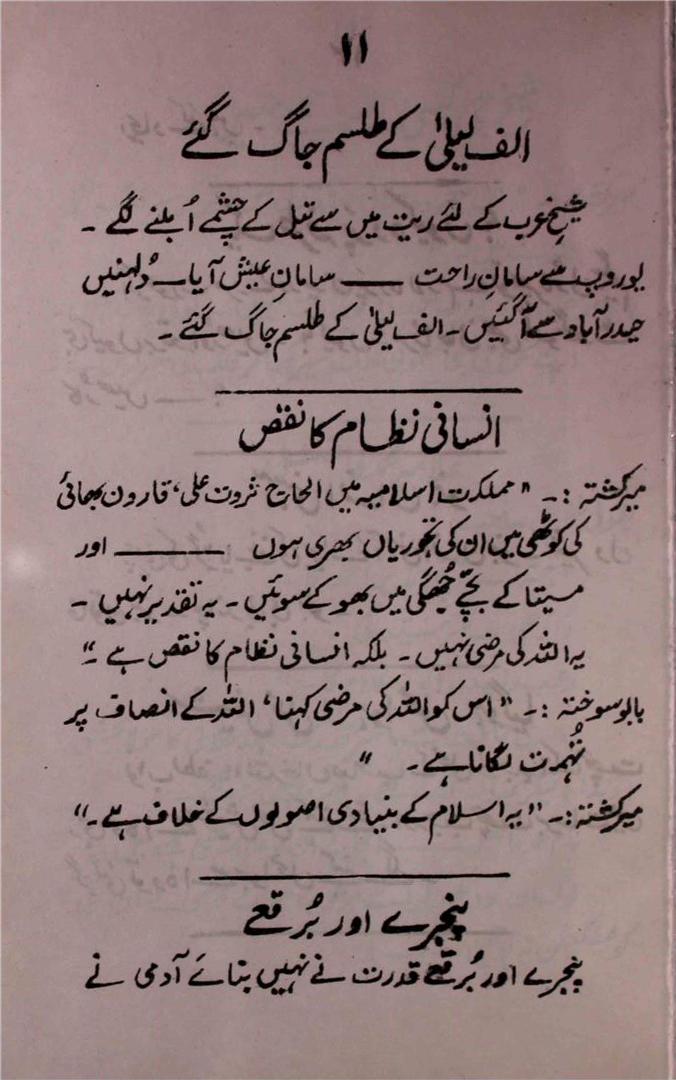 ۱۱
الف لیلیٰ کے طلسم جاگ گئے
شیخِ عرب کے لئے ریت میں سے تیل کے چشمے اُبلنے لگے ۔
یوروپ سے سامانِ راحت ــــ سامانِ عیش آیا ــ دُلہنیں
حیدرآباد سے آگئیں ۔ الف لیلیٰ کے طلسم جاگ گئے ۔
انسانی نظام کا نقص
میرکشتہ :۔ "مملکت اسلامیہ میں الحاج ثروت علی، قارون بھائی
کی کوٹھی میں ان کی تجوریاں بھری ہوں ــــــ اور
مسیتا کے بچّے جُھگی میں بھوکے سوئیں ۔ یہ تقدیر نہیں ۔
یہ اللہ کی مرضی نہیں ۔ بلکہ انسانی نظام کا نقص ہے ۔"
بابو سوختہ :۔ "اس کو اللہ کی مرضی کہنا، اللہ کے انصاف پر
تُہمت لگانا ہے ۔ "
میرکشتہ :۔ "یہ اسلام کے بنیادی اصولوں کے خلاف ہے ۔"
پنجرے اور بُرقعے
پنجرے اور بُرقعے قدرت نے نہیں بنائے آدمی نے